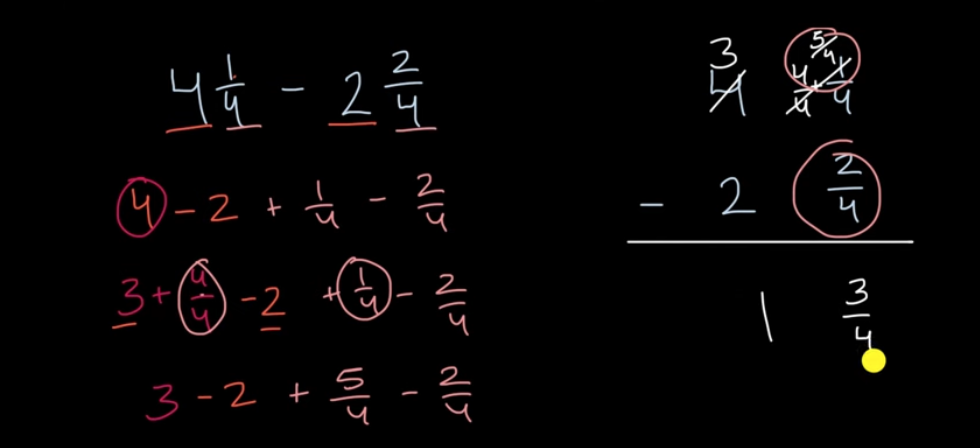 4 1/4 - 2 2/4
4 - 2 + 1/4 - 2/4
3 + 4/4 - 2 + 1/4 - 2/4
3 - 2 + 5/4 - 2/4
3 5/4
4 4/4 + 1/4
- 2 2/4
1 3/4